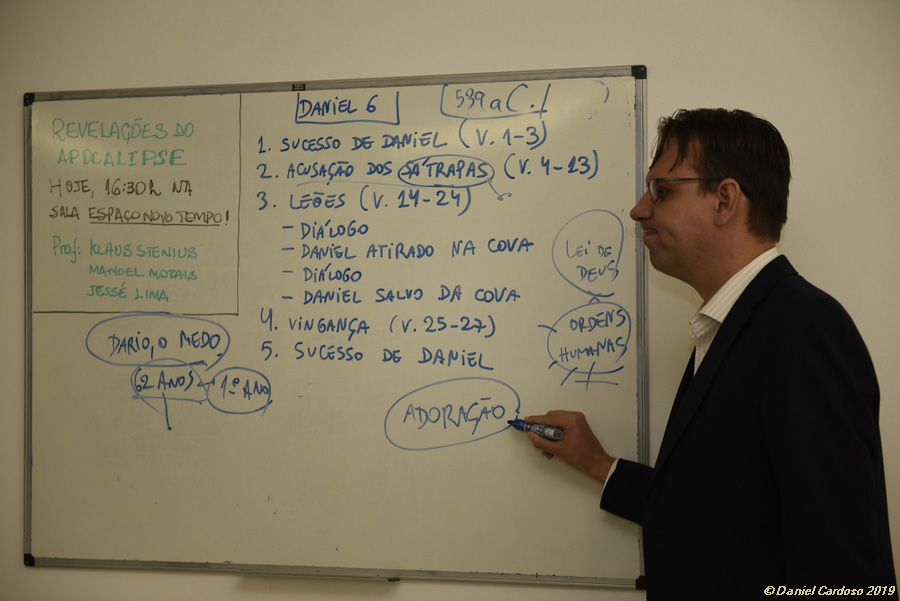 REVELAÇÕES DO
APOCALIPSE
HOJE, 16:30h NA
SALA ESPAÇO NOVO TEMPO!
Prof: KLAUS STENIUS
MANOEL MORAIS
JESSÉ LIMA
DANIEL 6
539 a C.
1. SUCESSO DE DANIEL (V. 1-3)
2. ACUSAÇÃO DOS SÁTRAPAS (V. 4-13)
3. LEÕES (V. 14-24)
- DIÁLOGO
- DANIEL ATIRADO NA COVA
- DIÁLOGO
- DANIEL SALVO DA COVA
4. VINGANÇA (V. 25-27)
5. SUCESSO DE DANIEL
DARIO, O MEDO
62 ANOS
1º ANO
LEI DE
DEUS
ORDENS
HUMANAS
ADORAÇÃO
©Daniel Cardoso 2019